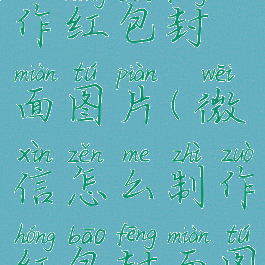 作红包封
miàn tú piàn wēi
面图片(微
xìn zěn me zhì zuò
信怎么制作
hóng bāo fēng miàn tú
红包封面图